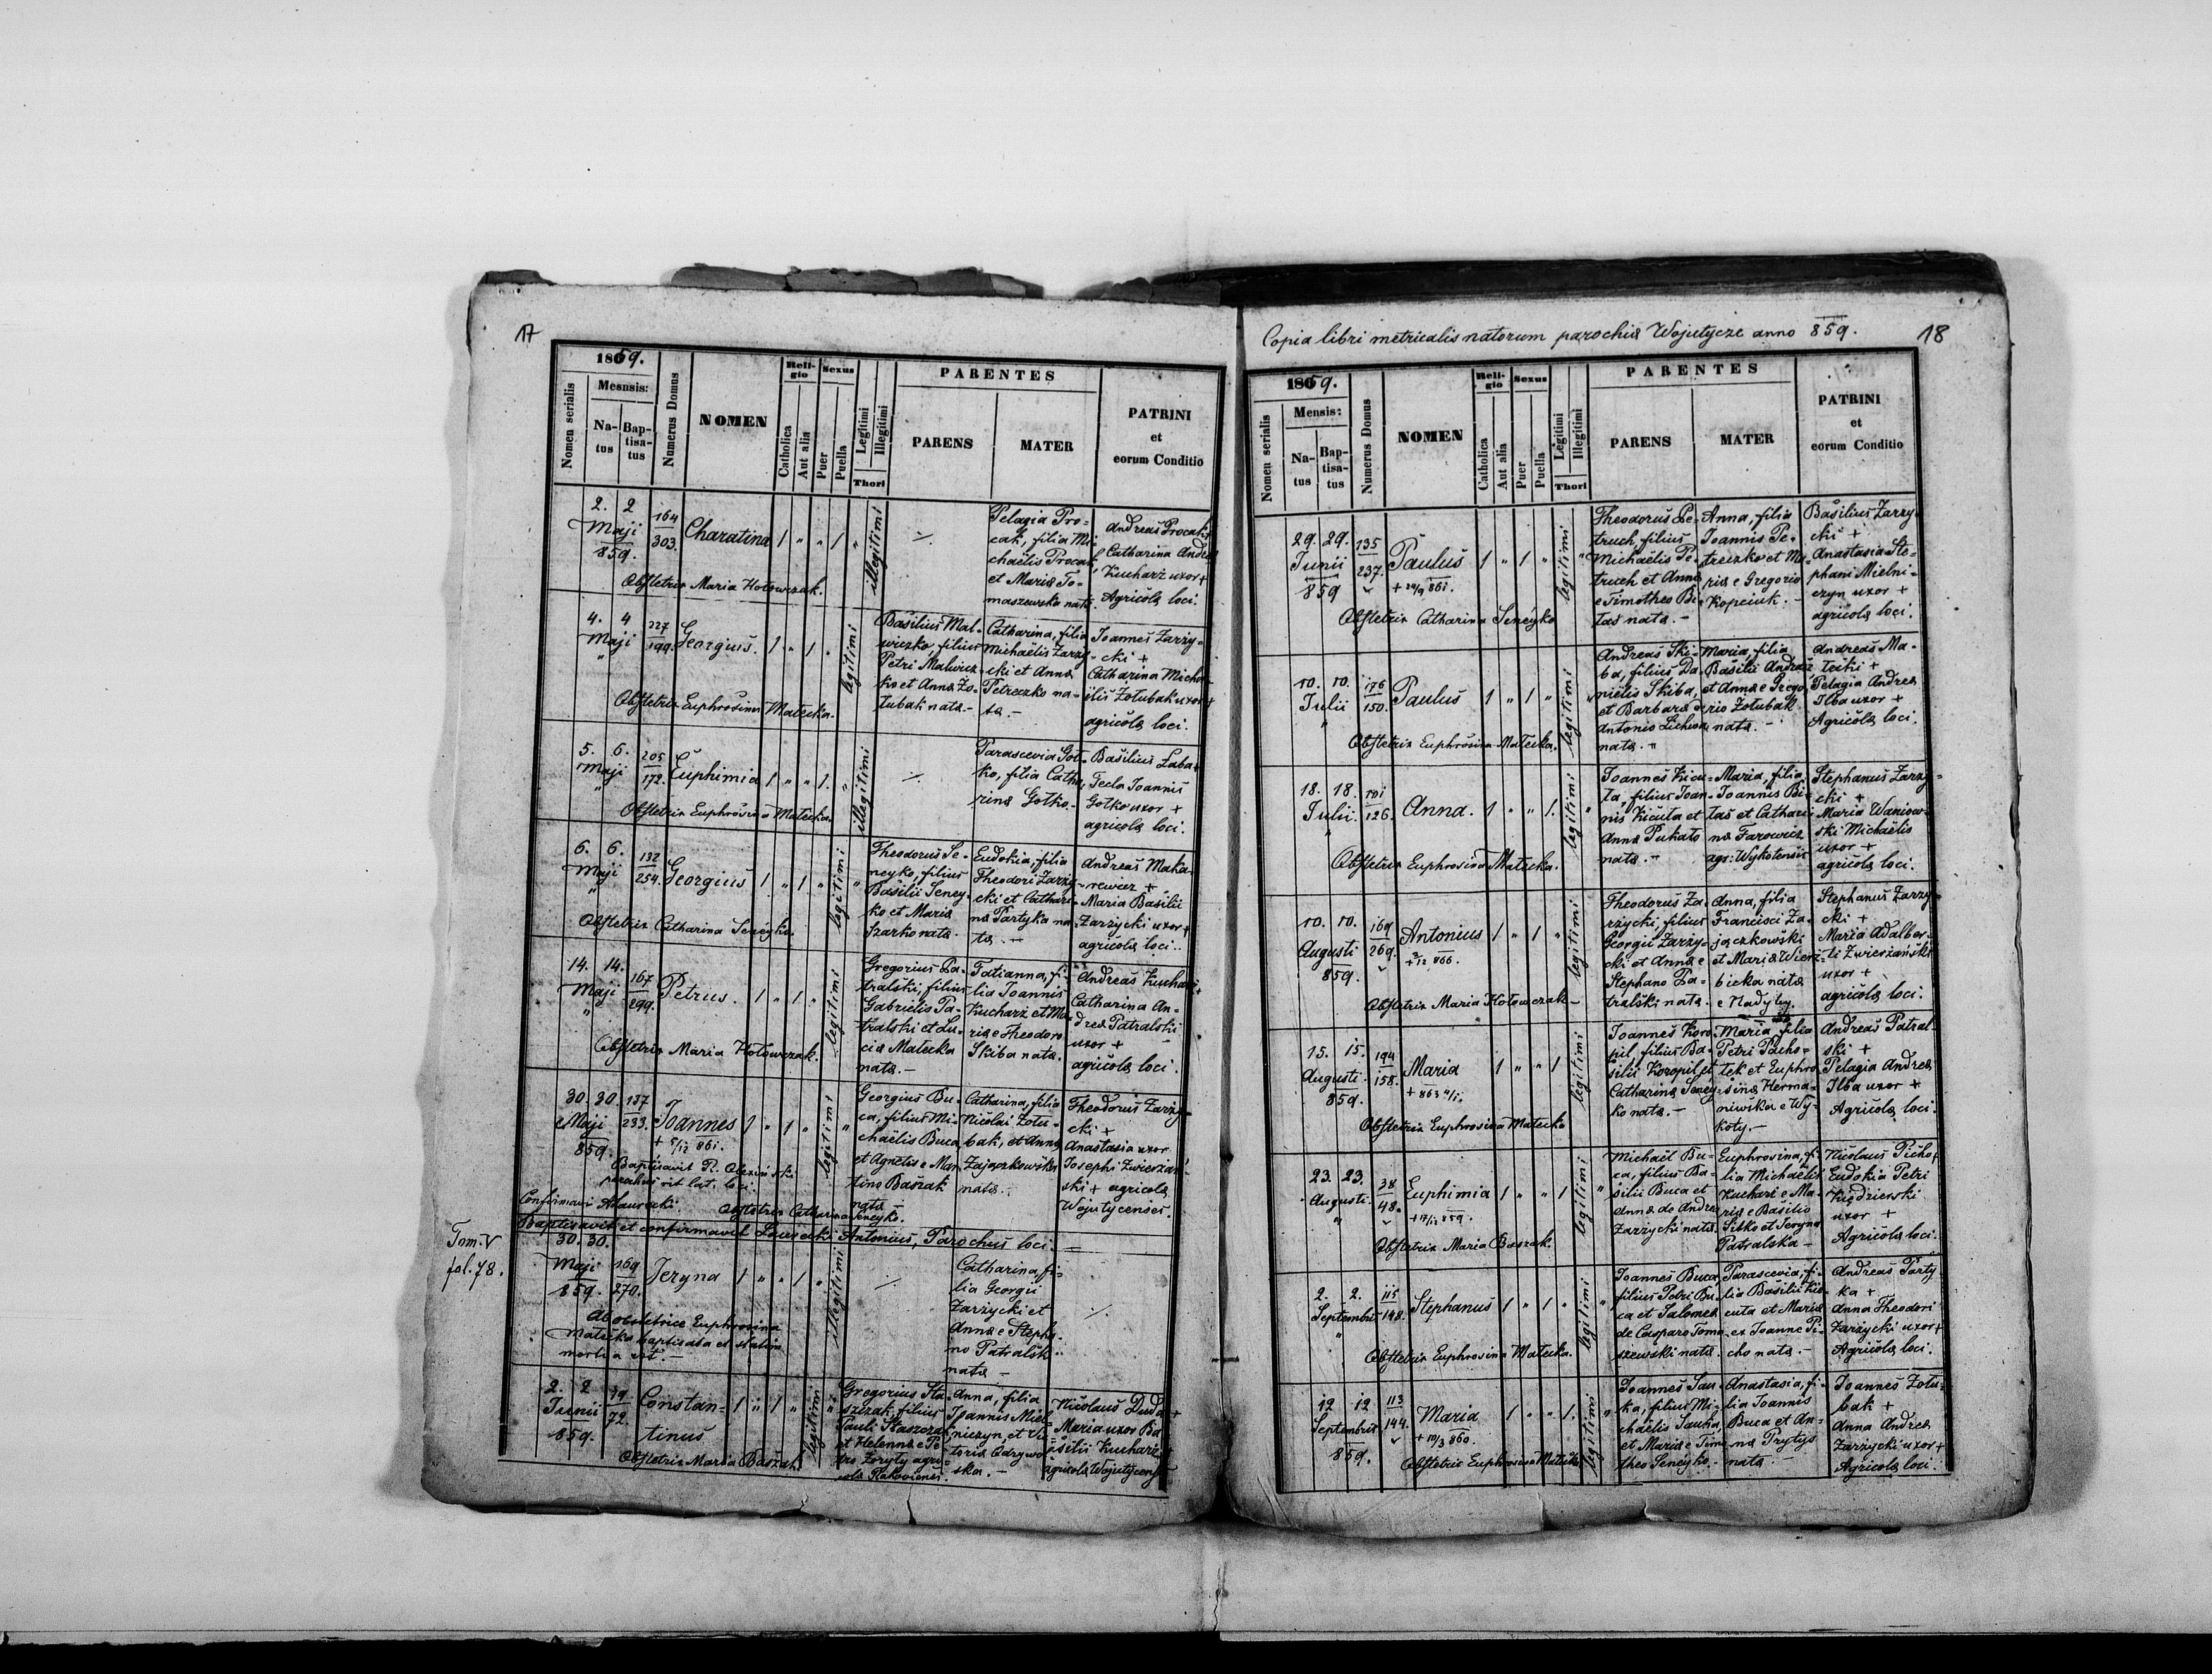 17
1859.
Nomen serialis
Mensis:
Na-
tus
Bap-
tisa-
tus
Numerus Domus
NOMEN
Reli-
gio
Catholica
Aut alia
Sexus
Puer
Puella
Legitimi
Illegitimi
Thori
PARENTES
PARENS
MATER
PATRINI
et
eorum Conditio
2. 2
Maji
859.
164
303.
Charatina
1 " " 1 "
illegitimi
Pelagia Pro-
cak, filia Mi-
chaëlis Procak
et Maria To-
maszewska nata.
Andreas Procak +
Catharina Andreæ
Kucharz uxor +
Agricolæ loci.
Obstetrix Maria Hołowczak.
4. 4
Maji
"
227
199.
Georgius.
1 " 1 "
legitimi
Basilius Mal-
wiczko, filius
Petri Malwicz-
ko et Anna Żo-
łubak nata.-
Catharina, filia
Michaëlis Zarzy-
cki et Anna
Petreczko na-
ta.-
Joannes Zarzy-
cki +
Catharina Micha-
ëlis Żołubak uxor +
agricolæ loci.
Obstetrix Euphrosina Małecka.
5. 6.
Maji
"
205
172.
Euphimia
1 " " 1. "
illegitimi
Parascevia Goł-
ko, filia Catha-
rinæ Gołko.
Basilius Łaba +
Tecla Joannis
Gołko uxor +
agricolæ loci.
Obstetrix Euphrosina Małecka.
6. 6.
Maji
"
132
254.
Georgius
1 " 1 " "
legitimi
Theodorus Se-
neyko, filius
Basilii Seney-
ko et Maria
Szarko nata.
Eudokia, filia
Theodori Zarzy-
cki et Cathari-
na Partyka na-
ta.-
Andreas Maka-
rewicz +
Maria Basilii
Zarzycki uxor +
agricolæ loci.
Obstetrix Catharina Seneyko.
14. 14.
Maji
"
167
299.
Petrus.
1 " 1 "
legitimi
Gregorius Pa-
tralski, filius
Gabrielis Pa-
tralski et Lu-
cia Małecka
nata.-
Tatianna, fi-
lia Joannis
Kucharz et Ma-
ria e Theodoro
Skiba nata.
Andreas Kucharz +
Catharina An-
dreæ Patralski
uxor +
agricolæ loci.
Obstetrix Maria Hołowczak.
30. 30.
Maji
859.
137
233.
Joannes
+ 5/12 861.
1 " 1 " "
legitimi
Georgius Bu-
ca, filius Mi-
chaëlis Buca
et Agnetis e Mar-
tino Baszak
nata
Catharina, filia
Nicolai Żołu-
bak, et Anna
Zajączkowska
nata.-
Theodorus Zarzy-
cki +
Anastasia uxor
Josephi Zwierzań-
ski + agricolæ
Wojutycenses.
Baptisavit R.
parochus rit. lat. loci.
Confirmavi
Obstetrix Catharina Seneyko.
Baptisavit et confirmavit Antonius, Parochus loci. =
Tom. V
fol. 78.
30. 30.
Maji
859.
169
270.
Jeryna
1 " " 1 "
illegitimi
Catharina, fi-
lia Georgii
Zarzycki et
Anna e Stepha-
no Patralski
nata -
Ab obstetrice Euphrosina
Małecka baptisata et statim
mortua est.-
2. 2
Junii
859.
79
72.
Constan-
tinus
1 " 1 " "
legitimi
Gregorius Sta-
szczak, filius
Pauli Staszczak
et Helenna e Pe-
tro Zoryły agri-
cola Rakoviensis.
Anna, filia
Joannis Miel-
niczyn, et Vic-
toria Odrzywo-
ska.-
Nicolaus Duda +
Maria uxor Ba-
silii Kucharz +
agricolæ Wojutycenses
Obstetrix Maria Baszak
Copia libri metricalis natorum parochiæ Wojutycze anno 859.
18
1859.
Nomen serialis
Mensis:
Na-
tus
Bap-
tisa-
tus
Numerus Domus
NOMEN
Reli-
gio
Catholica
Aut alia
Sexus
Puer
Puella
Legitimi
Illegitimi
Thori
PARENTES
PARENS
MATER
PATRINI
et
eorum Conditio
29. 29.
Junii
859
135
237.
Paulus
+ 24/9 861.
1 " 1 " "
legitimi
Theodorus Pe-
truch, filius
Michaëlis Pe-
truch et Anna
e Timotheo Bi-
łas nata.-
Anna, filia
Joannis Pe-
treczko et Ma-
ria e Gregorio
Kopciuk.-
Basilius Zarzy-
cki +
Anastasia Ste-
phani Mielni-
czyn uxor +
agricolæ loci.
Obstetrix Catharina Seneyko
10. 10.
Julii
"
176
150.
Paulus
1 " 1 " "
legitimi
Andreas Ski-
ba, filius Da-
nielis Skiba,
et Barbara e
Antonio Lichwa
nata."
Maria, filia
Basilii Andrász
et Anna e Grego-
rio Żołubak
nata.-
Andreas Ma-
łecki +
Pelagia Andreæ
Ilba uxor +
Agricolæ loci.
Obstetrix Euphrosina Małecka.
18. 18.
Julii.
"
101
126.
Anna.
1 " " 1.
legitimi
Joannes Kicu-
ta, filius Joan-
nis Kicuta et
Anna Pukało
nata.-
Maria, filia
Joannis Bi-
łas et Cathari-
na Farowicz
agr: Wykotensis
Stephanus Zarzy-
cki +
Maria Waniow-
ski Michaëlis
uxor +
agricolæ loci.
Obstetrix Euphrosina Małecka.
10. 10.
Augusti
859.
169
269.
Antonius
+ 2/12 866.
1 " 1 "
legitimi
Theodorus Za-
rzycki, filius
Georgii Zarzy-
cki et Anna e
Stephano Pa-
tralski nata.
Anna, filia
Francisci Za-
jączkowski
et Maria Wierz-
bicka nata
e Nadyby.
Stephanus Zarzy-
cki +
Maria Adalber-
ti Zwierzański
uxor +
agricolæ loci.
Obstetrix Maria Hołowczak-
15. 15.
Augusti
859.
194
158.
Maria
+ 863
1 " " 1
legitimi
Joannes Koro-
pil, filius Ba-
silii Koropil et
Catharina Seney-
ko nata.-
Maria, filia
Petri Pacho-
lek et Euphro-
sina Herma-
niwska e Wy-
koty.-
Andreas Patral-
ski +
Pelagia Andreæ
Ilba uxor +
Agricolæ loci.
Obstetrix Euphrosina Małecka
23. 23.
Augusti
"
38
48.
Euphimia
+ 17/12 859.
1 " " 1 "
legitimi
Michaël Bu-
ca, filius Ba-
silii Buca et
Anna de Andrea
Zarzycki nata.
Euphrosina, fi-
lia Michaëlis
Kucharz e Ma-
ria e Basilio
Sitko et Jeryna
Patralska -
Nicolaus Picho +
Eudokia Petri
Kiędzierski
uxor +
Agricolæ loci.
Obstetrix Maria Baszak.
2. 2.
Septembris
"
115
148.
Stephanus
1 " 1 " "
legitimi
Joannes Buca,
filius Petri Bu-
ca et Salomea
de Casparo Toma-
szewski nata.
Parascevia, fi-
lia Basilii Kic-
cuta et Maria
ex Joanne Pi-
cho nata.-
Andreas Party-
ka +
Anna Theodori
Zarzycki uxor +
Agricolæ loci.
Obstetrix Euphrosina Małecka.
12 12
Septembris
859.
113
144.
Maria
+ 10/3 860.
1 " " 1. "
legitimi
Joannes Sau-
ka, filius Mi-
chaëlis Sauka,
et Maria e Timo-
theo Seneyko.
Anastasia, fi-
lia Joannis
Buca et An-
na Prytys
nata.-
Joannes Żołu-
bak +
Anna Andreæ
Zarzycki uxor +
Agricolæ loci.
Obstetrix Euphrosina Małecka